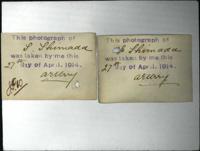 This photograph of
S Shimada
was taken by me this
27th day of April, 1914.
This photograph of
Shimada
was taken by me this
27th day of April, 1914.